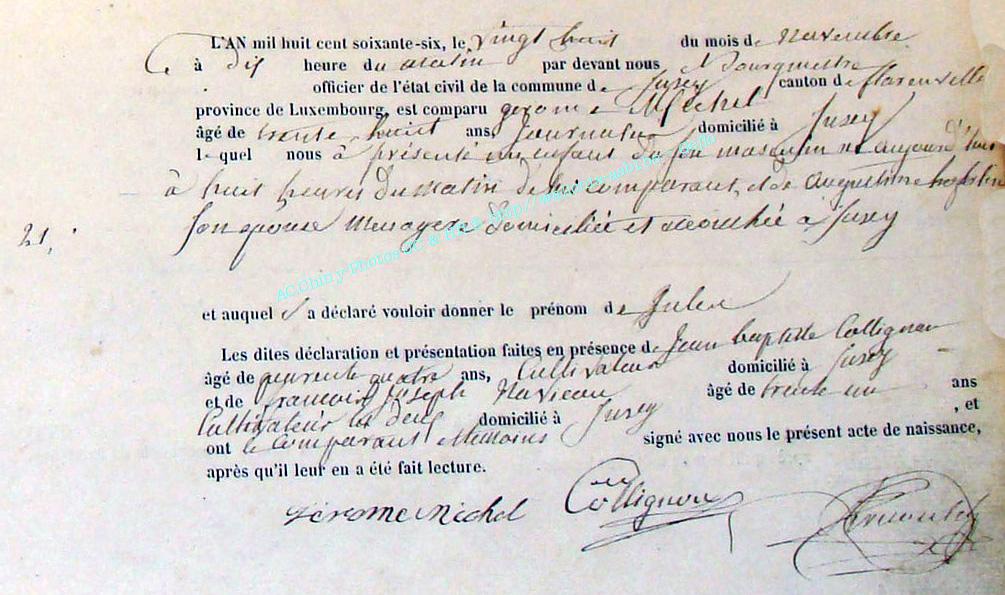 L'AN mil huit cent soixante-six, le vingt huit du mois de Novembre
à dix heure du matin par devant nous Bourgmestre
officier de l'état civil de la commune de Jusey canton de florenville
province de Luxembourg, est comparu gerome Michel
âgé de trente huit ans, Journalier domicilié à Jusey
le quel nous à présenté un enfant du son masculin né aujourd'hui
à huit heures du matin de lui comparant, et de Augustine
21, son épouse Menagere domiciliée et accouchée à Jusey
AC Chiny-Photos
et auquel il a déclaré vouloir donner le prénom de Julien
Les dites déclaration et présentation faites en présence de Jean baptiste Collignon
âgé de quatre ans, Cultivateur domicilié à Jusey
et de francois Joseph Naviaux âgé de trente un ans
Cultivateur les deux domicilié à Jusey , et
ont le comparant & témoins signé avec nous le présent acte de naissance,
après qu'il leur en a été fait lecture.
Jérome Michel Collignon